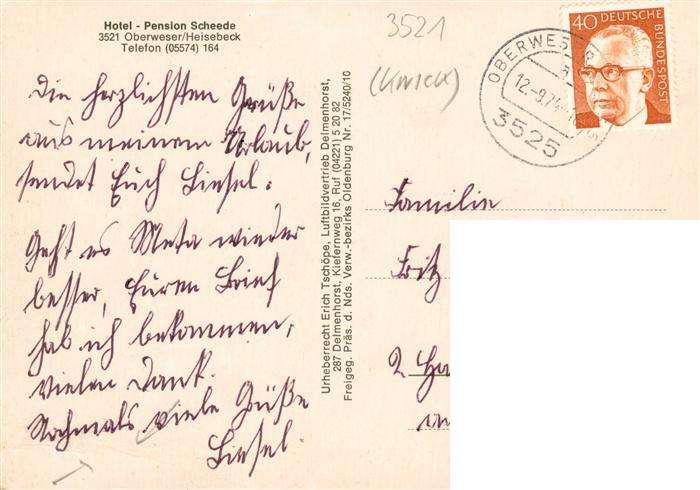 Hotel - Pension Scheede
3521 Oberweser/Heisebeck
Telefon (05574) 164
Die herzlichsten Grüße
aus meinem Urlaub,
sendet Euch Liesel.
Geht es Meta wieder
besser, Euren Brief
hab ich bekommen,
vielen Dank.
Nochmals viele Grüße
Liesel.
Urheberrecht Erich Tschöpe, Luftbildvertrieb Delmenhorst,
287 Delmenhorst, Kiefernweg 16, Ruf (04221) 5 20 82
Freigeg. Präs. d. Nds. Verw.-bezirks Oldenburg Nr. 17/5240/10
3521
OBERWESER
12.-9.74
3525
40 DEUTSCHE
BUNDESPOST
Familie
Fritz
2 Ha